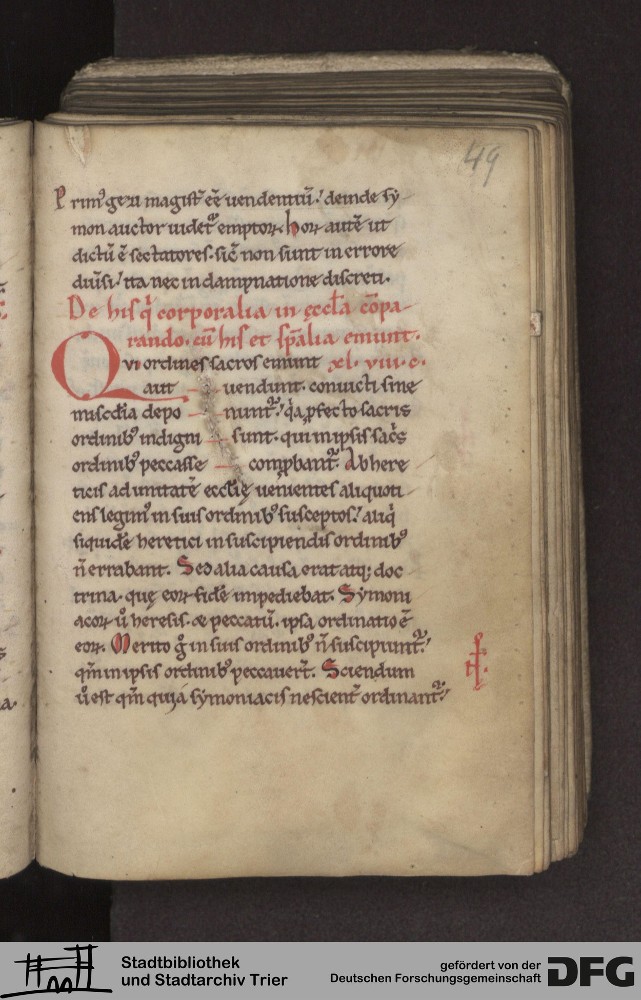 49
Primꝰ gezi magist̄ eē uendentiū! deinde sy
mon auctor uidet᷑ emptoꝝ. hoꝝ autē ut
dictū ē sectatores. sic̄ non sunt in errore
diuīsi! ita nec in dampnatione discreti.
De his q̇ corporalia in ęccl̄a cōpa
rando. cū his et sp̄alia emunt.
Qvi ordines sacros emunt xl. viii. c.
aut uendunt. conuicti sine
misc̄dia deponunt᷑! q̇a ꝓfecto sacris
ordinibꝰ indigni sunt. qui in ipsis sac̄s
ordinibꝰ peccasse comꝓbant᷑. Ab here
ticis ad unitatē ecclię uenientes aliquoti
ens legimꝰ in suis ordinibꝰ susceptos! aliq̇
siquidē heretici in suscipiendis ordinibꝰ
n̄ errabant. Sed alia causa erat atq; doc
trina. quę eoꝝ fidē impediebat. Symoni
acoꝝ u̇ heresis. ⁊ peccatū. ipsa ordinatio ē
eoꝝ. Merito g̊ in suis ordinibꝰ n̄ suscipiunt᷑!
qm̄ in ipsis ordinibꝰ peccauert̄. Sciendum
u̇ est qm̄ qui a symoniacis nescient̄ ordinant᷑!
Stadtbibliothek
und Stadtarchiv Trier
gefördert von der
Deutschen Forschungsgemeinschaft
DFG